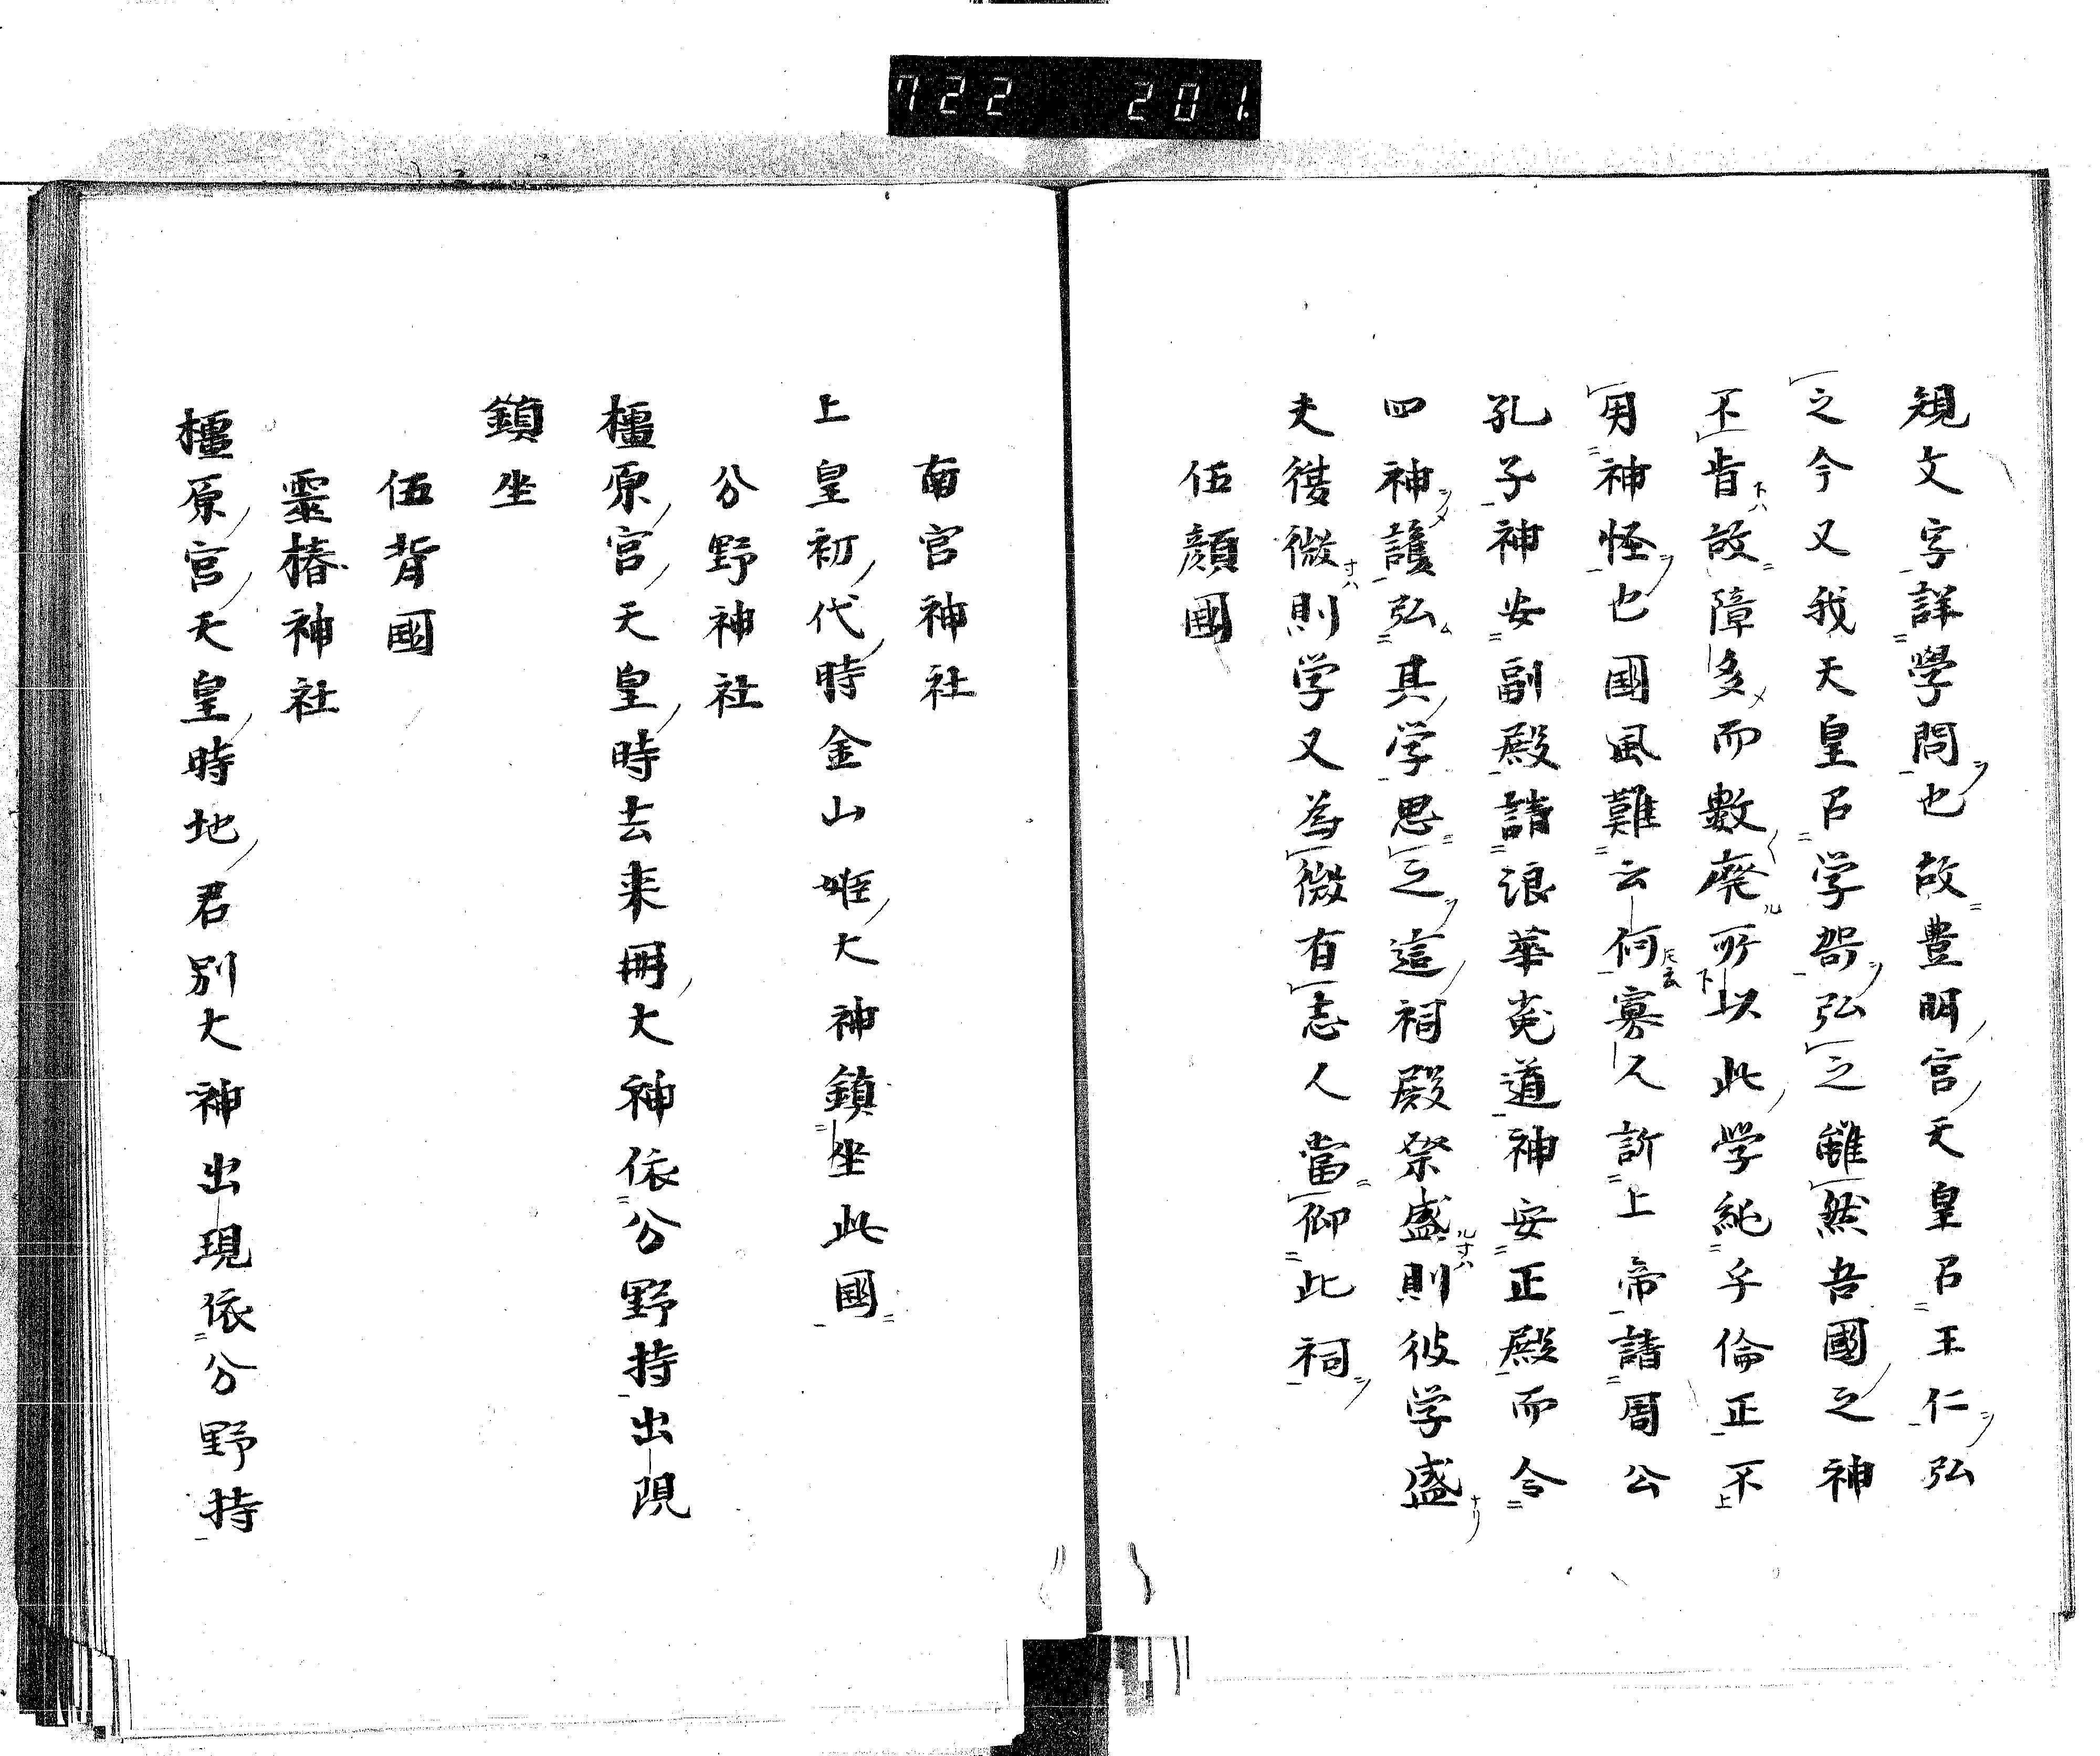 722 201.
規文字詳學問也故豊明宮天皇召王仁弘
之今又我天皇召学哿弘之雖然吾國之神
不肯故障多而數廃所以此學純乎倫正不
用神怪也國風難云何寡人訴上帝請周公
孔子神安副殿請浪華菟道神安正殿而令
四神護弘其学思之這祠殿祭盛則彼学盛
夫後微則学又為微有志人當仰此祠
伍顏國
南宮神社
上皇初代時金山姫大神鎮坐此國
分野神社
橿原宮天皇時去来冊大神依分野持出現
鎮坐
伍背國
靈椿神社
橿原宮天皇時地君別大神出現依分野持